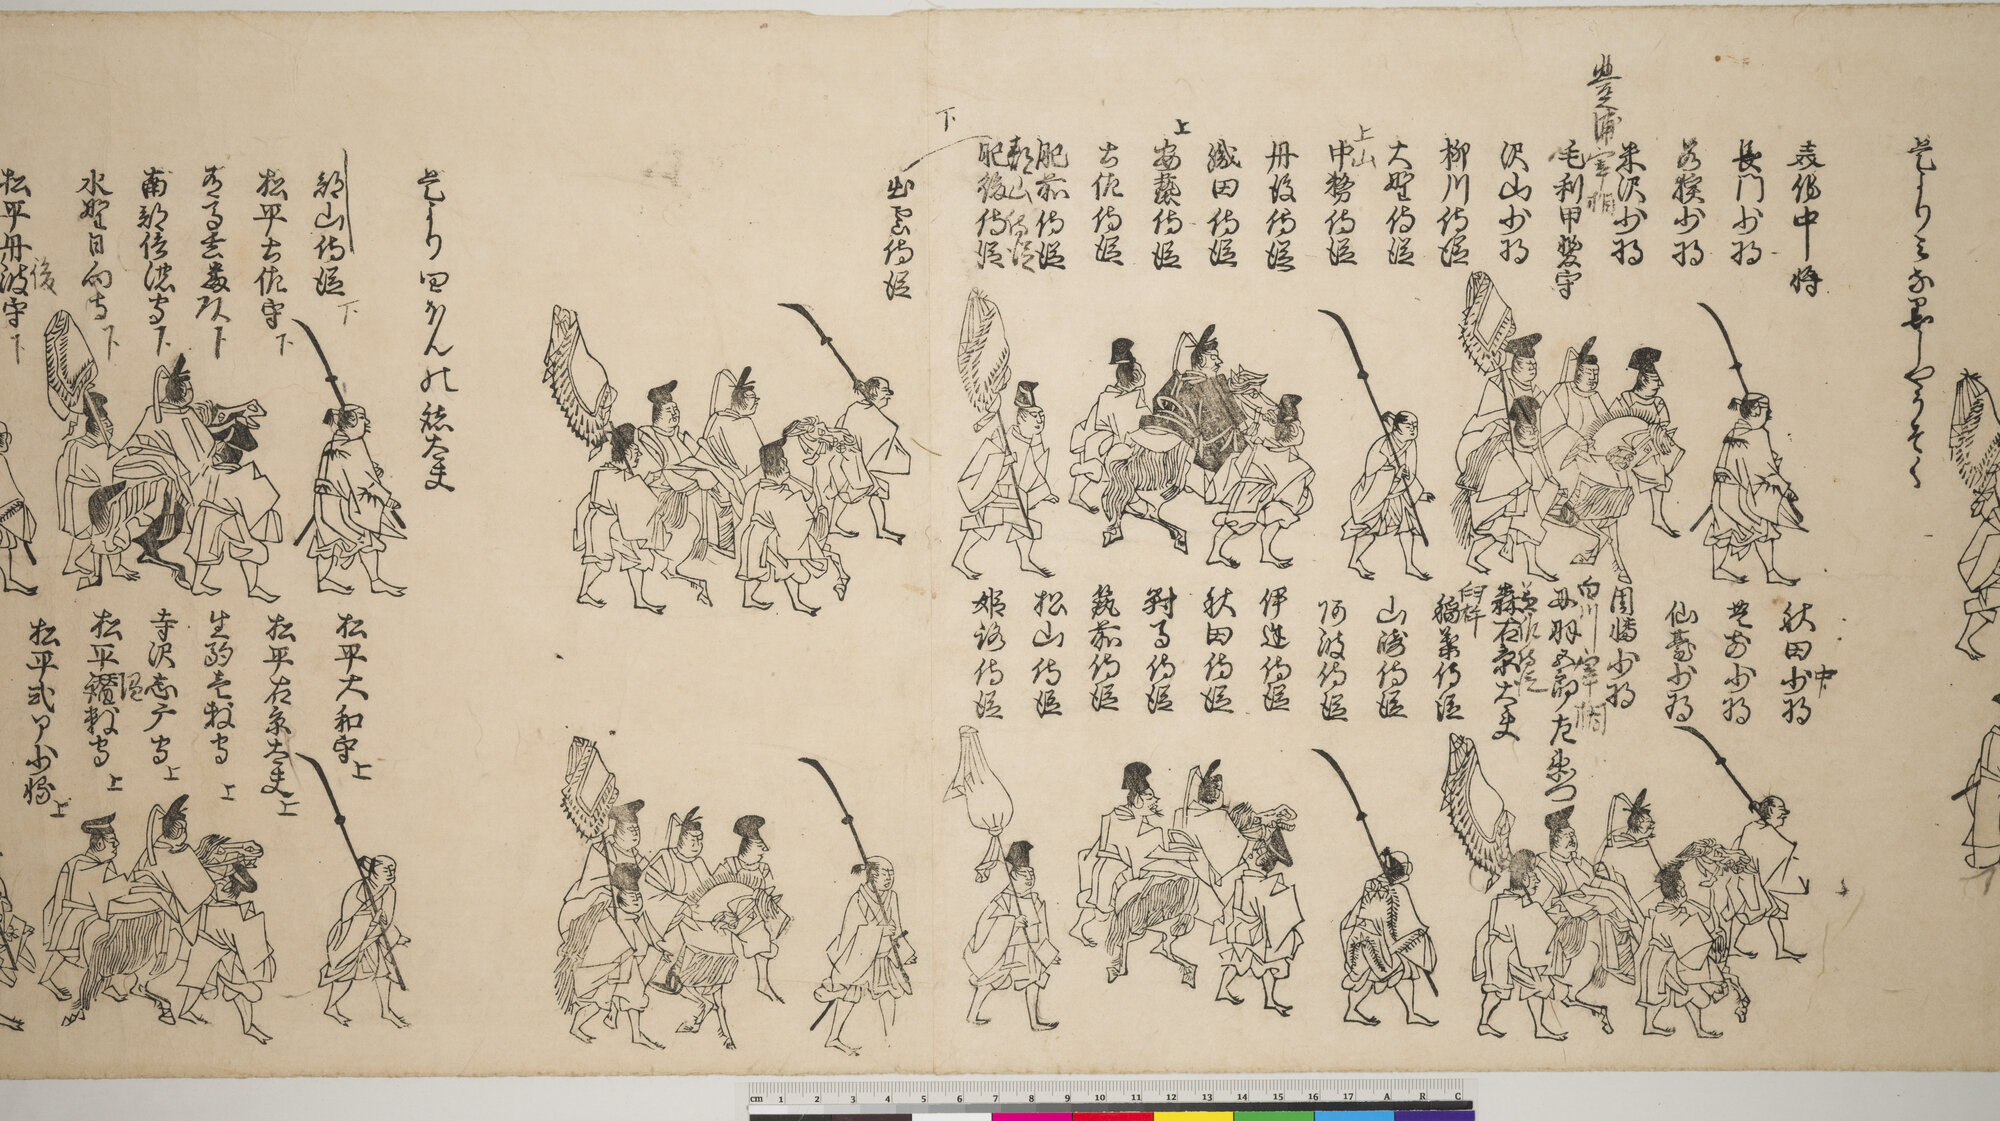 是よりミな黒しやうそく
表佐中将
長門少将
若狭少将
豊浦宰相
米沢少将
毛利甲斐守
沢山少将
柳川侍従
大野侍従
上山
中務侍従
丹後侍従
織田侍従
上
安藝侍従
土佐侍従
肥前侍従
郡山侍従
肥後侍従
下
出雲侍従
中
秋田少将
少将
仙臺少将
因幡少将
白川宰相
丹羽五郎左衛門
侍従
森右京大夫
臼杵
稲葉侍従
山崎侍従
阿波侍従
伊達侍従
秋田侍従
對馬侍従
筑前侍従
松山侍従
姫路侍従
是より四ほんの諸大夫
郡山侍従
下
松平土佐守
下
有馬玄蕃頭
下
南部信濃守
下
水野日向守
下
後
松平丹波守
下
松平大和守
上
松平右京大夫
上
生駒壱岐守
上
寺沢志广守
上
松平讃岐守
上
松平式部少輔
上
cm 1 2 3 4 5 6 7 8 9 10 11 12 13 14 15 16 17 A R C